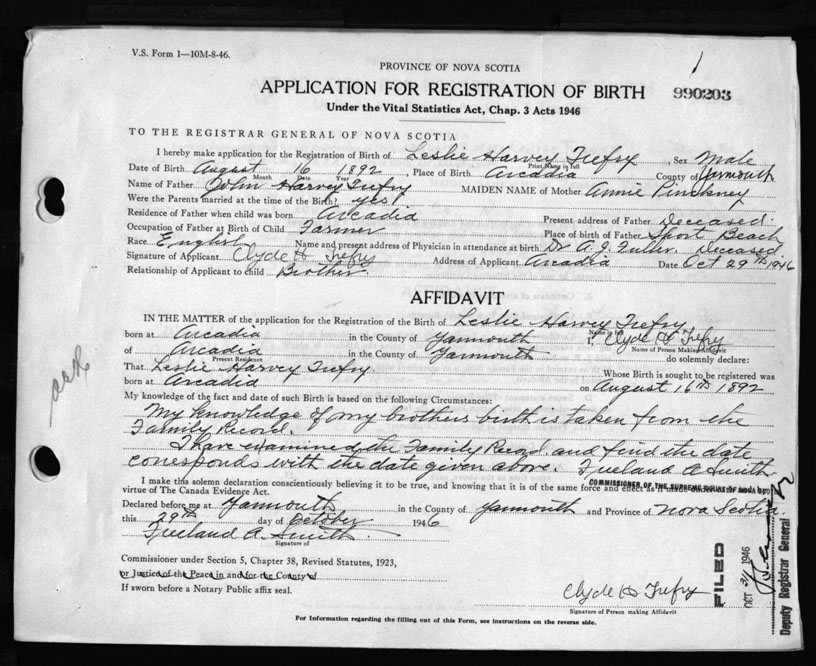 V.S. Form 1—10M-8-46.
PROVINCE OF NOVA SCOTIA
APPLICATION FOR REGISTRATION OF BIRTH
990203
Under the Vital Statistics Act, Chap. 3 Acts 1946
TO THE REGISTRAR GENERAL OF NOVA SCOTIA
I hereby make application for the Registration of Birth of Leslie Harvey Trefry, Sex Male
Print Name in full
Date of Birth August 16 1892, Place of Birth Arcadia County of Yarmouth
Month Date Year
Name of Father John Harvey Trefry MAIDEN NAME of Mother Annie Pinckney
Were the Parents married at the time of the Birth? yes
Residence of Father when child was born Arcadia Present address of Father Deceased.
Occupation of Father at Birth of Child Farmer Place of birth of Father Short Beach
Race English Name and present address of Physician in attendance at birth Dr A. J. Fuller. Deceased.
Signature of Applicant Clyde H Trefry Address of Applicant Arcadia Date Oct 29th 1946
Relationship of Applicant to child Brother.
AFFIDAVIT
IN THE MATTER of the application for the Registration of the Birth of Leslie Harvey Trefry
Name in full
born at Arcadia in the County of Yarmouth I, Clyde H Trefry
Name of Person Making Affidavit
of Arcadia in the County of Yarmouth do solemnly declare:
Present Residence
That Leslie Harvey Trefry. Whose Birth is sought to be registered was
born at Arcadia on August 16th 1892
My knowledge of the fact and date of such Birth is based on the following Circumstances:
My knowledge of my brothers birth is taken from the
Family Record.
I have examined the Family Record and find the date
corresponds with the date given above. Freeland A Smith
COMMISSIONER OF THE SUPREME COURT OF NOVA SCO
I make this solemn declaration conscientiously believing it to be true, and knowing that it is of the same force and effect as if made under oath and by
virtue of The Canada Evidence Act.
Declared before me at Yarmouth in the County of Yarmouth and Province of Nova Scotia.
this 29th day of October 1946
Freeland A. Smith
Signature of
Commissioner under Section 5, Chapter 38, Revised Statutes, 1923,
or Justice of the Peace in and for the County of
If sworn before a Notary Public affix seal.
Clyde H Trefry
Signature of Person making Affidavit
For Information regarding the filling out of this Form, see instructions on the reverse side.
FILED
OCT 31 1946
Deputy Registrar General